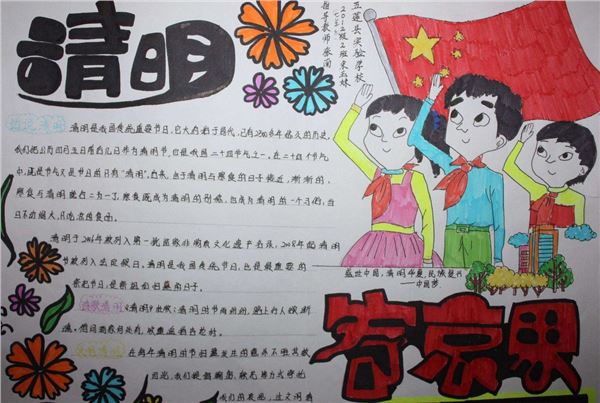 清明
五莲县实验学校
2012级2班
指导教师
清明是我国传统重要节日,它大约始于周代,已有2500多年悠久的历史,
我们把公历四月五日前后几日作为清明节,也是我国二十四节气之一,在二十四个节气
中,既是节气又是节日的只有"清明"。后来,由于清明与寒食的日子接近,渐渐的,
寒食与清明就合二为一了,寒食既成为清明的别称,也成为清明的一个习俗,当
日不动烟火,只吃凉的食品。
清明于2006年被列入第一批国家非物质文化遗产名录,2008年起清明
节被列入法定假日。清明是我国传统节日,也是最重要的
祭祀节日,是祭祖和扫墓的日子。
清明时节雨纷纷,路上行人欲断
魂。借问酒家何处有,牧童遥指杏花村。
在每年清明
我们
盛世中国,清明华夏,民族复兴
——中国梦
寄哀思